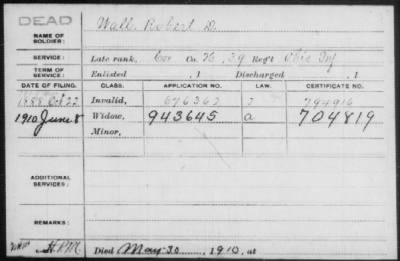 DEAD
NAME OF SOLDIER: Wall, Robert D.
SERVICE: Late rank, Cor Co. K, 39 Reg't Ohio Inf
TERM OF SERVICE: Enlisted , 1 Discharged , 1
DATE OF FILING. CLASS. APPLICATION NO. LAW. CERTIFICATE NO.
1888 Oct 22 Invalid, 676367 794916
1910 June 8 Widow, 943645 a 704819
Minor,
ADDITIONAL SERVICES:
REMARKS:
H.P.M. Died May 30, 1910, at